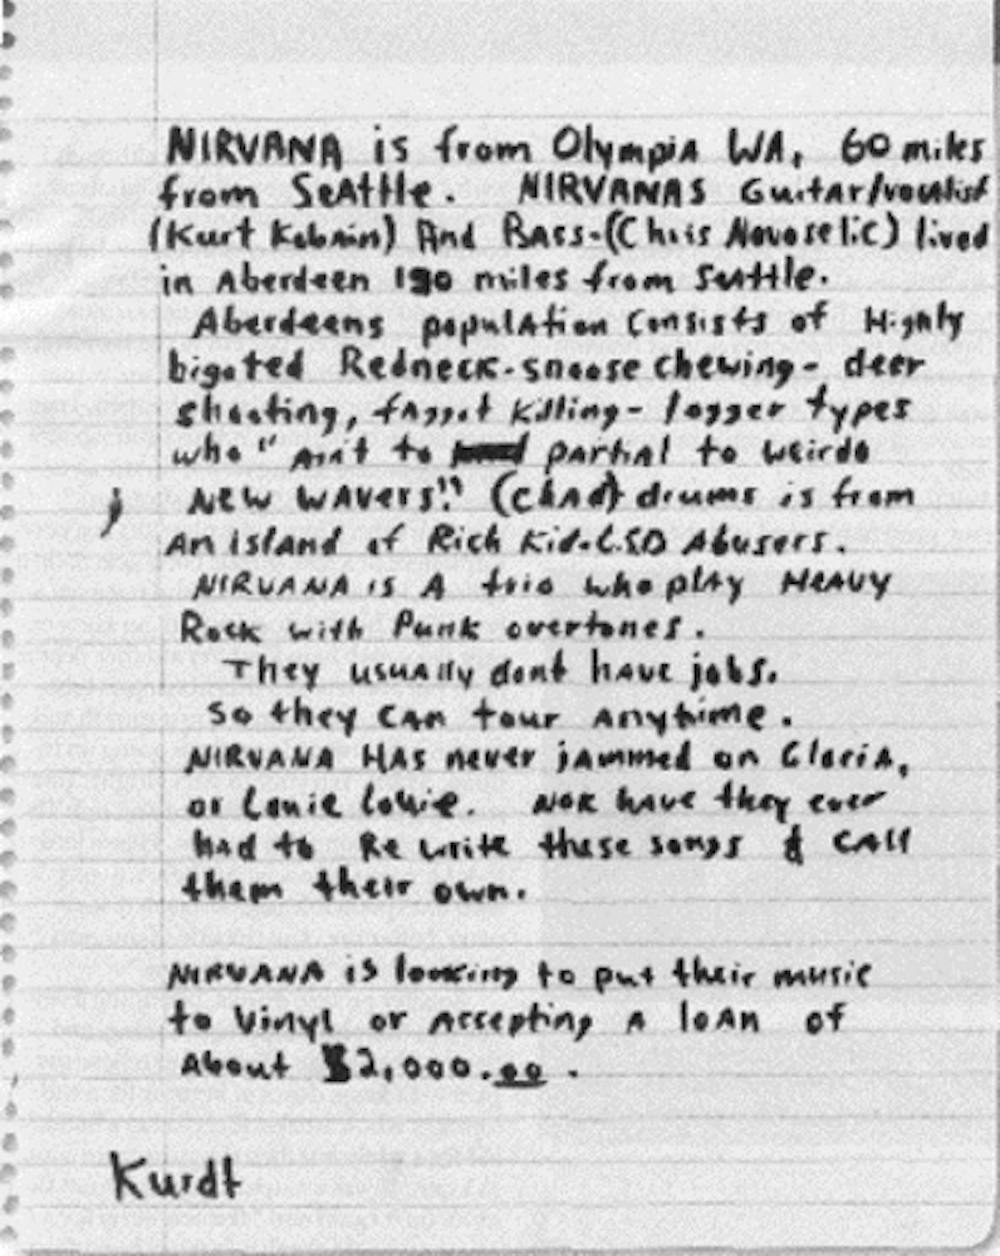 NIRVANA is from Olympia WA, 60 miles
from Seattle. NIRVANAS Guitar/vocalist
(Kurt Kobain) And Bass-(Chris Novoselic) lived
in Aberdeen 190 miles from Seattle.
Aberdeens population consists of Highly
bigoted Redneck-snoose chewing- deer
shooting, faggot killing- logger types
who "ain't to partial to weirdo
New wavers!" (Chad) drums is from
An island of Rich Kid-LSD Abusers.
NIRVANA is A trio who play HEAVY
Rock with Punk overtones.
They usually dont have jobs.
So they can tour anytime.
NIRVANA HAs never jammed on Gloria,
or Louie Louie. NOR have they ever
had to Re write these songs & call
them their own.
NIRVANA is looking to put their music
to Vinyl or accepting a loan of
About $2,000.00 .
Kurdt